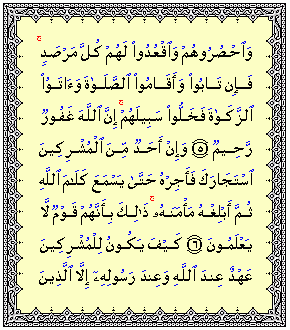 وَٱحۡصُرُوهُمۡ وَٱقۡعُدُواْ لَهُمۡ كُلَّ مَرۡصَدٖۚ
فَإِن تَابُواْ وَأَقَامُواْ ٱلصَّلَوٰةَ وَءَاتَوُاْ
ٱلزَّكَوٰةَ فَخَلُّواْ سَبِيلَهُمۡۚ إِنَّ ٱللَّهَ غَفُورٞ
رَّحِيمٞ ٥ وَإِنۡ أَحَدٞ مِّنَ ٱلۡمُشۡرِكِينَ
ٱسۡتَجَارَكَ فَأَجِرۡهُ حَتَّىٰ يَسۡمَعَ كَلَٰمَ ٱللَّهِ
ثُمَّ أَبۡلِغۡهُ مَأۡمَنَهُۥۚ ذَٰلِكَ بِأَنَّهُمۡ قَوۡمٞ لَّا
يَعۡلَمُونَ ٦ كَيۡفَ يَكُونُ لِلۡمُشۡرِكِينَ
عَهۡدٌ عِندَ ٱللَّهِ وَعِندَ رَسُولِهِۦٓ إِلَّا ٱلَّذِينَ